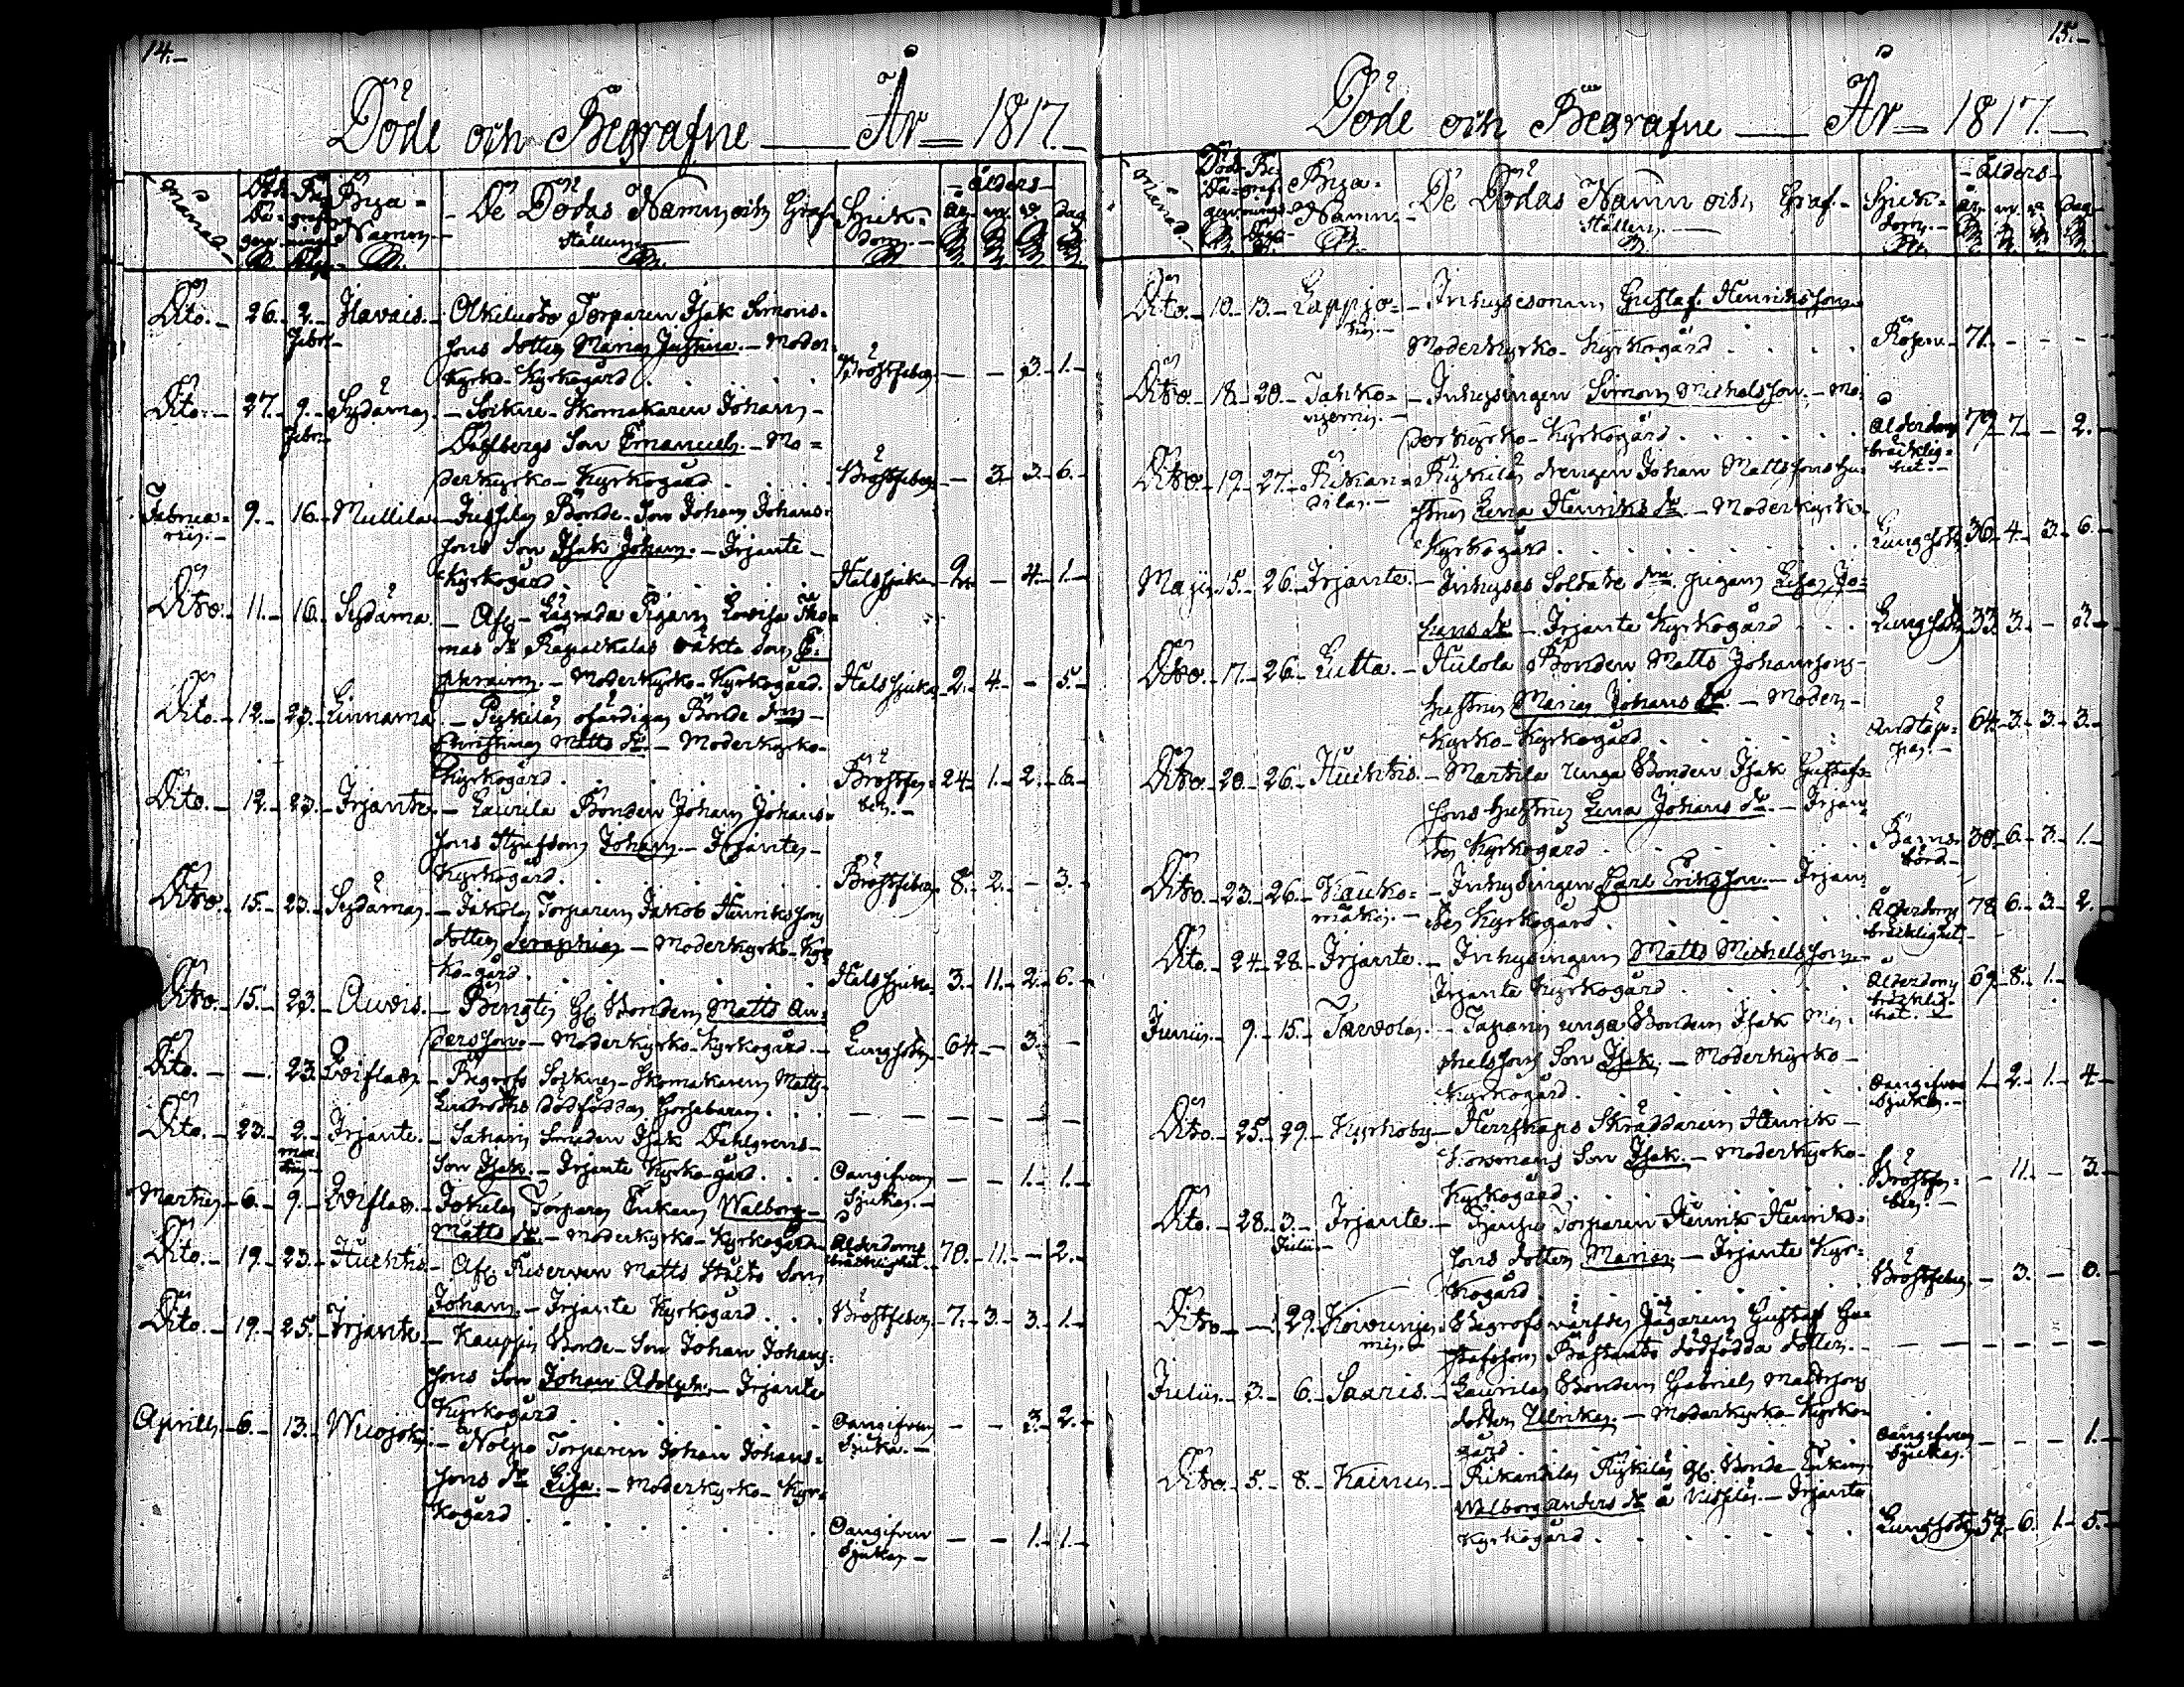 14.-
Döde och Begrafne — År = 1817.-
Månad.-
Döds Dagen.
Begrafnings Dag.
Bya-Namn.-
De Dödas Namn, och Graf-
Ställen.
Sjuk-
dom.-
Ålders
år. m. v. Dag.
Dito.- 26.- 2.- Ilavais.- Olkiluoto Torparen Isak Simons-
Febr.-
sons dotter Maria Justina.- Moder-
Kyrko-Kyrkogård . . . Bröstfeber - - 3.- 1.-
Dito.- 27.- 9.- Sydäma.- Sockne-Skomakaren Johan
Febr.-
Dahlbergs Son Emanuel.- Mo-
derkyrko-Kyrkogård . . . Bröstfeber - 3.- 3.- 6.-
Februa- 9.- 16.- Mullila.- Jussila Bonde-Son Johan Johans-
rii.-
sons Son Isak Johan.- Irjante
Kyrkogård . . . Halssjuka 2.- - 4.- 1.-
Dito.- 11.- 16.- Sydäma.- Afl. Lägrada Pigan Lovisa Tho-
mas dr. Rapalkalas oäkta Son E-
phraim.- Moderkyrko-Kyrkogård. Halssjuka 2.- 4.- - 5.-
Dito.- 12.- 23.- Linnama.- Pyykilä ofärdiga Bonde drn
Christina Matts dr.- Moderkyrko-
Kyrkogård . . . Bröstfe- 24.- 1.- 2.- 6.-
ber.-
Dito.- 12.- 23.- Irjante.- Laurila Bonden Johan Johans-
sons Styfson Johan.- Irjante
Kyrkogård . . . Bröstfeber 8.- 2.- - 3.-
Dito.- 15.- 23.- Sydäma.- Jakola Torparen Jakob Henriksson
dotter Seraphia.- Moderkyrko-Kyr-
ko-gård . . . Halssjuka 3.- 11.- 2.- 6.-
Dito.- 15.- 23.- Auvois.- Bengti Gl. Bonden Matts An-
dersson.- Moderkyrko-Kyrkogård.- Lungsot 64.- - 3.- -
Dito.- -. 23. Zveiflax.- Begrofs Sockne-Skomakaren Matts
dödfödda Gossebarn. . . - - - - -
Dito.- 23.- 2.- Irjante.- Sahari Smeden Isak Dahlgrens
Mar-
tii.-
Son Isak.- Irjante Kyrko-gård. . . Oangifven - - 1.- 1.-
Sjuka.-
Martii 6.- 9.- Zveiflax.- Jokela Torpare Enkan Walborg
Matts dr.- Moderkyrko-Kyrkogård Ålderdoms 70.- 11.- - 2.-
bräcklighet.-
Dito.- 19.- 23.- Huchtis.- Afl. Reserven Matts Stålts Son
Johan.- Irjante Kyrkogård. . . Bröstfeber 7.- 3.- 3.- 1.-
Dito.- 19.- 25.- Irjante.- Kauppi Bonde-Son Johan Johans-
sons Son Johan Adolph.- Irjante
Kyrkogård . . . Oangifven - - 3.- 2.-
Sjuka.-
Aprill 6.- 13.- Wuojoki.- Nolpo Torparen Johan Johans-
sons dr Lisa.- Moderkyrko-Kyr-
kogård . . . Oangifven - - 1.- 1.-
Sjuka.-
15.-
Döde och Begrafne — År = 1817.-
Månad.-
Döds Dagen.
Begrafnings Dag.
Bya-Namn.-
De Dödas Namn och Graf-
Ställen.
Sjuk-
dom.-
Ålders
år. m. v. Dag.
Dito.- 10.- 13.- Lappjo- - Inhysesman Gustaf Henriksson
ki.-
Moderkyrko-Kyrkogård . . . Rosen 71.- - - -
Dito.- 18.- 20.- Tahko- - Inhysingen Simon Michelsson.- Mo-
niemi.-
derkyrko-Kyrkogård . . . Ålderdoms 79.- 7.- - 2.-
bräcklig-
het.-
Dito.- 19.- 27.- Rikan- - Rykilä drengen Johan Mattssons hu-
dila.-
stru Lena Henriks dr.- Moderkyrko-
Kyrkogård . . . Lungsot 36.- 4.- 3.- 6.-
Maji 15.- 26.- Irjante.- Inhyses Soldate drn Pigan Lisa Jo-
hans dr.- Irjante Kyrkogård . . Lungsot 33.- 3.- - 3.-
Dito.- 17.- 26.- Lutta.- Hulola Bonden Matts Johanssons
hustru Maria Johans dr.- Moder-
Kyrko-Kyrkogård . . . Andtäp- 64.- 3.- 3.- 3.-
pa.-
Dito.- 20.- 26.- Huchtis.- Martila unga Bonden Isak Gustafs-
sons hustru Lena Johans dr.- Irjan-
te Kyrkogård . . . Barns- 30.- 6.- 3.- 1.-
börd.-
Dito.- 23.- 26.- Kauko- - Inhysingen Carl Eriksson.- Irjan-
mäki.-
te Kyrkogård . . . Ålderdoms 78 6.- 3.- 2.-
bräcklighet.-
Dito.- 24.- 28.- Irjante.- Inhysingen Matts Michelsson.-
Irjante Kyrkogård . . . Ålderdoms 69.- 8.- 1.- -
bräcklig-
het.-
Junii.- 9.- 15.- Tarvola.- Tapani unga Bonden Isak Mi-
chelssons Son Isak.- Moderkyrko-
Kyrkogård . . . Oangifven 1.- 2.- 1.- 4.-
Sjuka.-
Dito.- 25.- 29.- Kyrkoby.- Herrskaps Skräddaren Henrik
Son Isak.- Moderkyrko-
Kyrkogård . . . Bröstfe- - 11.- - 3.-
ber.-
Dito.- 28.- 3.- Irjante.- Torparen Henrik Henriks-
Julii.-
sons dotter Maria.- Irjante Kyr-
kogård . . . Bröstfeber - 3.- - 0.-
Dito.- -. 29.- - Begrofs Jägaren Gustaf Gu-
stafsson dödfödda dotter.- - - - -
Julii.- 3.- 6.- Saaris.- Laurila Bonden Gabriel Mattssons
dotter Ulrika.- Moderkyrko-Kyrko-
gård . . . Oangifven - - - 1.-
Sjuka.
Dito.- 5.- 8.- Kainu.- Rikandila Rykilä gl. Bonde-Enkan
Walborg Anders dr å .- Irjante
Kyrkogård . . . Lungsot 59.- 6.- 1.- 5.-